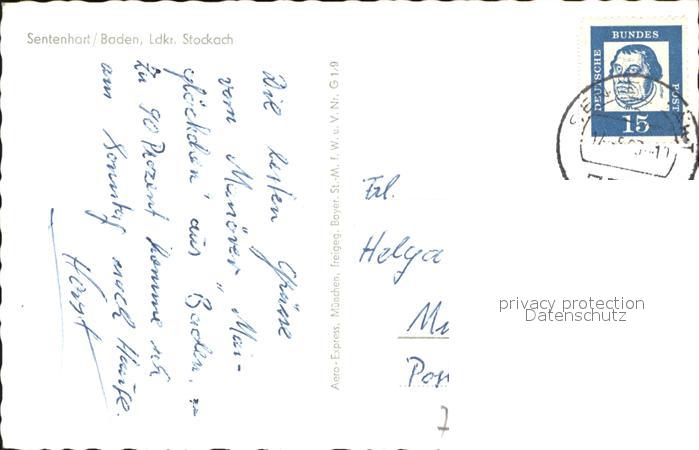 Sentenhart/Baden, Ldkr. Stockach
Die besten Grüsse
vom Manöver „Mai-
glöckchen“ aus Baden.
Zu 90 Prozent komme ich
am Sonntag nach Hause.
Horst
Aero-Express, München, freigeg. Bayer. St. M. f. W. u. V. Nr. G 1/9
DEUTSCHE
BUNDES
POST
15
Frl.
Helga
privacy protection
Datenschutz